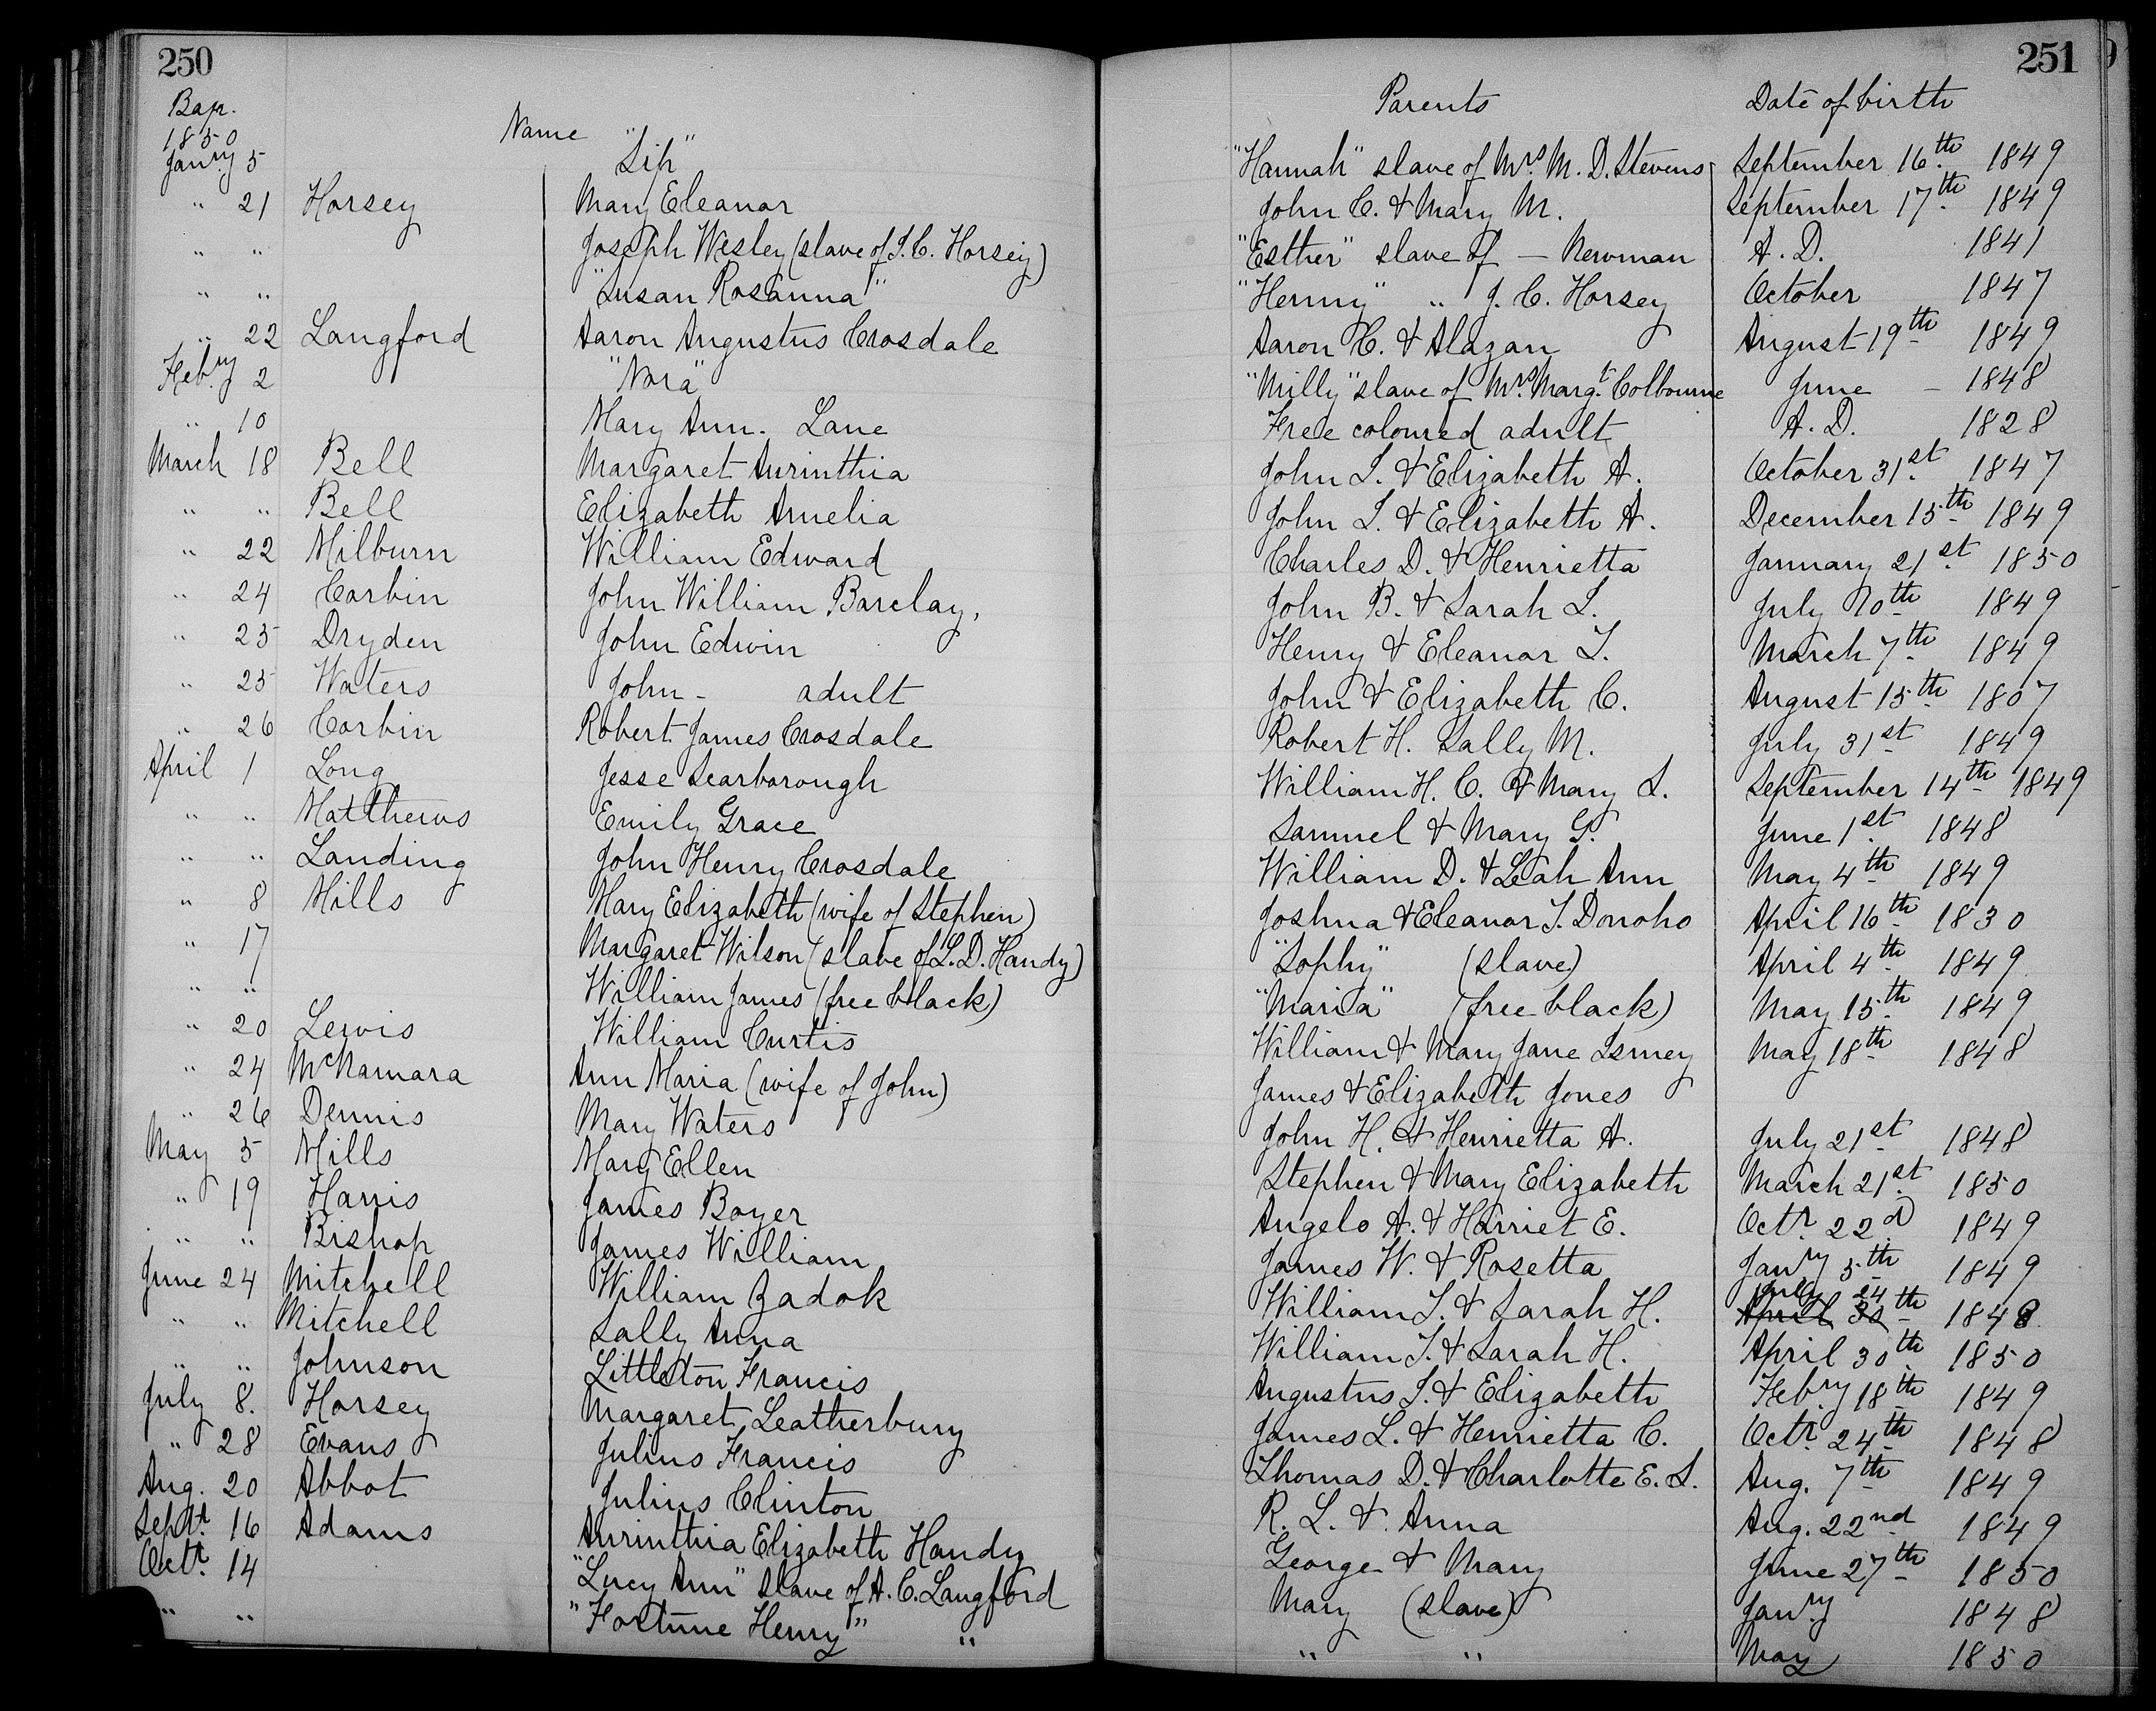 250
Bap.
1850
Name
Janry. 5 "Sip"
" 21 Horsey Mary Eleanor
" " Joseph Wesley (slave of J. C. Horsey)
" " "Susan Rosanna"
" 22 Langford Aaron Augustus Crosdale
Febry. 2 "Nora"
" 10 Mary Ann. Lane
March 18 Bell Margaret Aurinthia
" " Bell Elizabeth Amelia
" 22 Milburn William Edward
" 24 Corbin John William Barclay,
" 25 Dryden John Edwin
" 25 Waters John - adult
" 26 Corbin Robert James Crosdale
April 1 Long Jesse Scarborough
" " Matthews Emily Grace
" " Landing John Henry Crosdale
" 8 Mills Mary Elizabeth (wife of Stephen)
" 17 Margaret Wilson (slave of L. D. Handy)
" " William James (free black)
" 20 Lewis William Curtis
" 24 McNamara Ann Maria (wife of John)
" 26 Dennis Mary Waters
May 5 Mills Mary Ellen
" 19 Harris James Boyer
" " Bishop James William
June 24 Mitchell William Zadok
" " Mitchell Sally Anna
" " Johnson Littleton Francis
July 8. Horsey Margaret Leatherbury
" 28 Evans Julius Francis
Aug. 20 Abbot Julius Clinton
Sept. 16 Adams Aurinthia Elizabeth Handy
Octr. 14 "Lucy Ann" slave of A. C. Langford
" " "Fortune Henry" "
251
Parents Date of birth
"Hannah" slave of Mrs. M. D. Stevens September 16th. 1849
John C. & Mary M. September 17th. 1849
"Esther" slave of — Newman A. D. 1841
"Henny" " J. C. Horsey October 1847
Aaron C. & Alazan August 19th 1849
"Milly" slave of Mrs. Margt. Colbourne June — 1848
Free coloured adult A. D. 1828
John S. & Elizabeth A. October 31st. 1847
John S. & Elizabeth A. December 15th 1849
Charles D. & Henrietta January 21st. 1850
John B. & Sarah S. July 10th 1849
Henry & Eleanor T. March 7th. 1849
John & Elizabeth C. August 15th 1807
Robert H. Sally M. July 31st 1849
William H. C. & Mary S. September 14th 1849
Samuel & Mary G. June 1st. 1848
William D. & Leah Ann May 4th 1849
Joshua & Eleanor J. Donoho April 16th 1830
"Sophy" (slave) April 4th 1849
"Maria" (free black) May 15th. 1849
William & Mary Jane May 18th 1848
James & Elizabeth Jones
John H. & Henrietta A. July 21st 1848
Stephen & Mary Elizabeth March 21st. 1850
Angelo A. & Harriet E. Octr. 22d 1849
James W. & Rosetta Janry 5th 1849
July 24
William T. & Sarah H. April 30th 1848
William T. & Sarah H. April 30th 1850
Augustus S. & Elizabeth Febry. 18th 1849
James L. & Henrietta C. Octr. 24th 1848
Thomas D. & Charlotte E. S. Aug. 7th 1849
R. L. & Anna Aug. 22nd 1849
George & Mary June 27th 1850
Mary (slave) Janry. 1848
" " May 1850